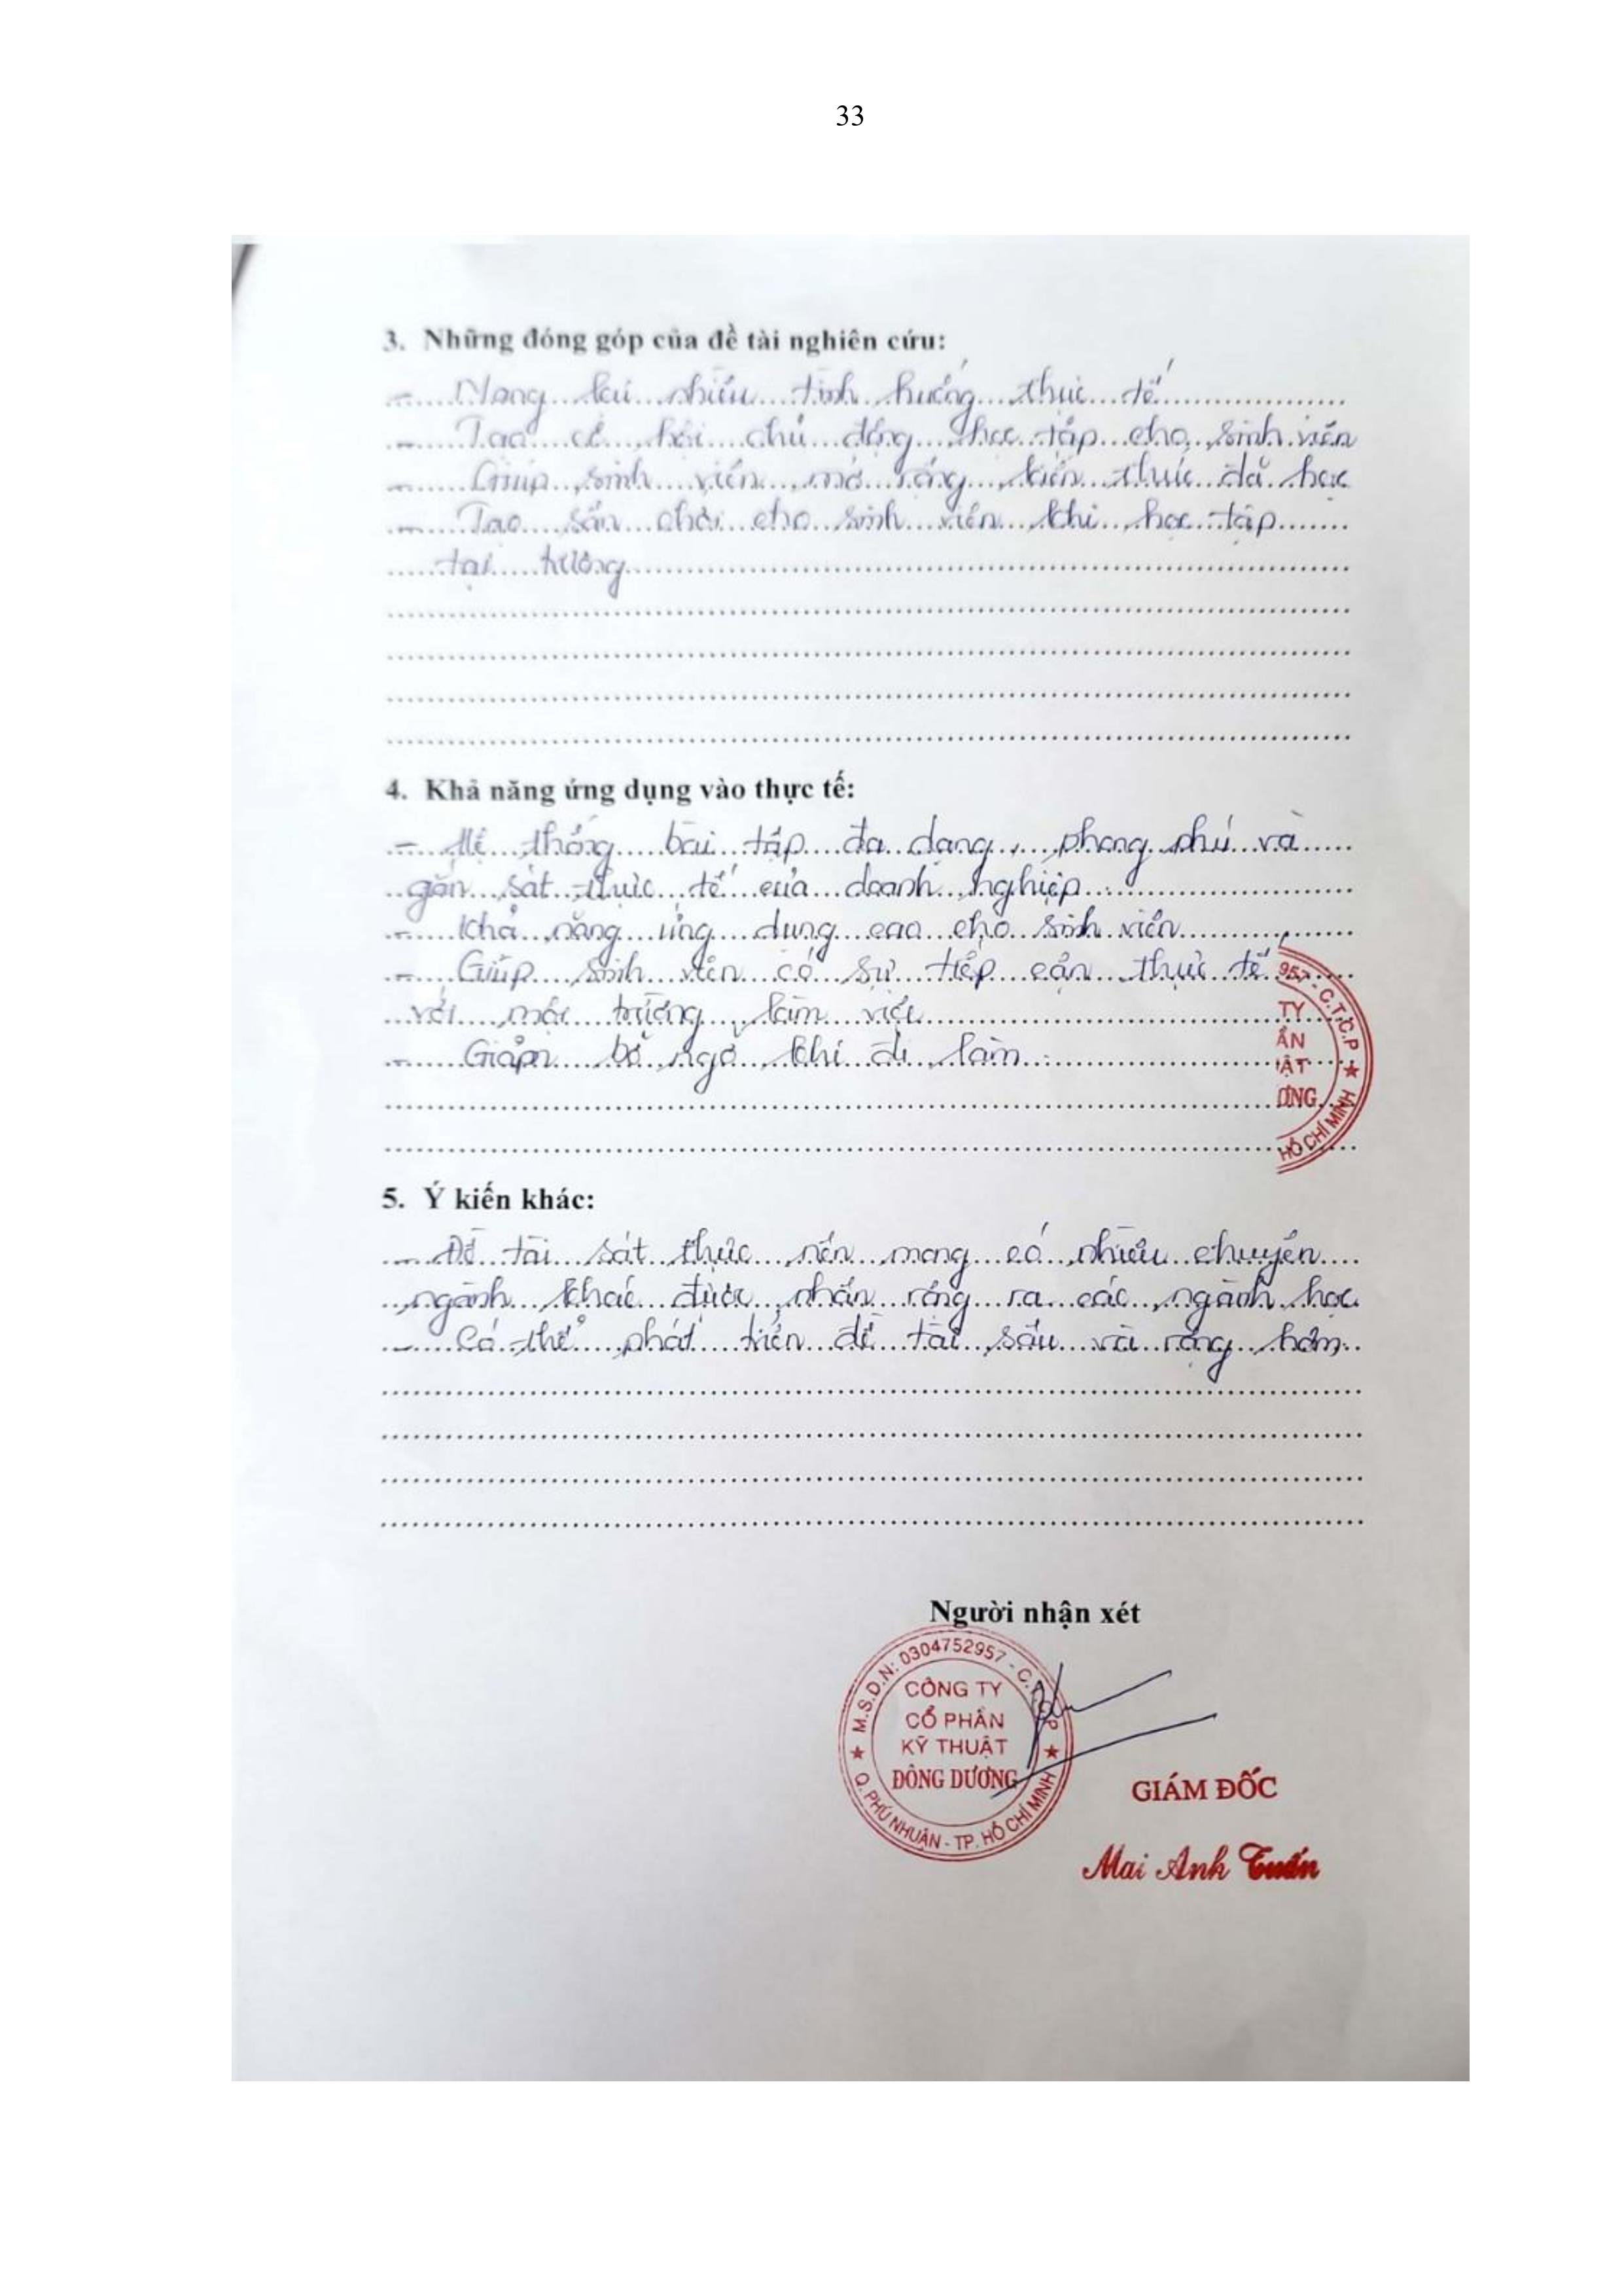 33
3. Những đóng góp của đề tài nghiên cứu:
- Mang lại nhiều tình huống thực tế
- Tạo cơ hội chủ động học tập cho sinh viên
- Giúp sinh viên mở rộng kiến thức đã học
- Tạo sân chơi cho sinh viên khi học tập
tại trường
4. Khả năng ứng dụng vào thực tế:
- Hệ thống bài tập đa dạng, phong phú và
gần sát thực tế của doanh nghiệp.
- Khả năng ứng dụng cao cho sinh viên
- Giúp sinh viên có sự tiếp cận thực tế
với môi trường làm việc
- Giảm bỡ ngỡ khi đi làm.
957 - C.T.C.P
TY
ẦN
UẬT
ƯƠNG
HỒ CHÍ MINH
5. Ý kiến khác:
- Đề tài sát thực nên mong có nhiều chuyên
ngành khác được nhân rộng ra các ngành học
- Có thể phát triển đề tài sâu và rộng hơn.
Người nhận xét
M.S.D.N: 0304752957 - C.T.C.P
CÔNG TY
CỔ PHẦN
KỸ THUẬT
ĐÔNG DƯƠNG
Q. PHÚ NHUẬN - TP. HỒ CHÍ MINH
GIÁM ĐỐC
Mai Anh Tuấn